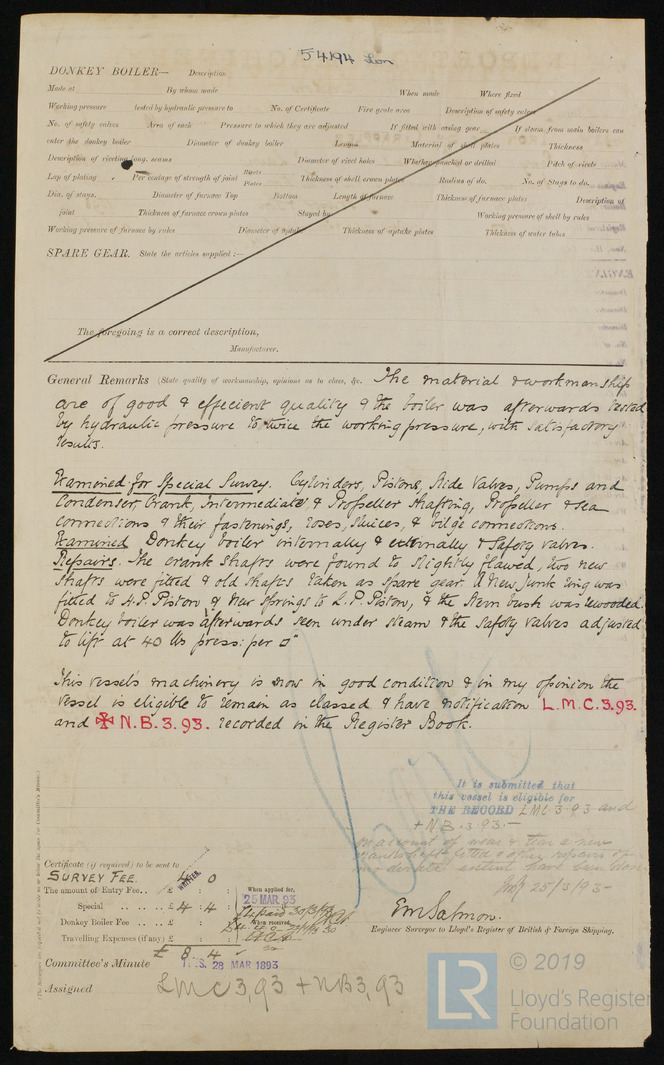 54194 Lon
DONKEY BOILER— Description
Made at By whom made When made Where fixed
Working pressure tested by hydraulic pressure to No. of Certificate Fire grate area Description of safety valves
No. of safety valves Area of each Pressure to which they are adjusted If fitted with easing gear If steam from main boilers can
enter the donkey boiler Diameter of donkey boiler Length Material of shell plates Thickness
Description of riveting long. seams Diameter of rivet holes Whether punched or drilled Pitch of rivets
Lap of plating Per centage of strength of joint Rivets Plates Thickness of shell crown plates Radius of do. No. of Stays to do.
Dia. of stays. Diameter of furnace Top Bottom Length of furnace Thickness of furnace plates Description of
joint Thickness of furnace crown plates Stayed by Working pressure of shell by rules
Working pressure of furnace by rules Diameter of uptake Thickness of uptake plates Thickness of water tubes
SPARE GEAR. State the articles supplied:—
The foregoing is a correct description,
Manufacturer.
General Remarks (State quality of workmanship, opinions as to class, &c. The material & workmanship
are of good & effecient quality & the boiler was afterwards tested
by hydraulic pressure to twice the working pressure, with satisfactory
results.
Examined for Special Survey. Cylinders, Pistons, Slide Valves, Pumps and
Condenser, Crank, Intermediate & Propeller Shafting, Propeller & sea
connections & their fastenings, roses, sluices, & bilge connections.
Examined Donkey boiler internally & externally & Safety valves.
Repairs. The crank shafts were found to slightly flawed, two new
shafts were fitted & old shafts taken as spare gear. A new junk ring was
fitted to H.P. Piston & new springs to L.P. Piston, & the stern bush was rewooded.
Donkey boiler was afterwards seen under steam & the safety valves adjusted
to lift at 40 lbs press: per □"
This vessel's machinery is now in good condition & in my opinion the
vessel is eligible to remain as classed & have notification L.M.C.3.93.
and ✠ N.B.3.93. recorded in the Register Book.
It is submitted that
this vessel is eligible for
THE RECORD LMC 3.93 and
+ N.B. 3.93.—
on account of wear & tear a new
25/3/93
Certificate (if required) to be sent to
SURVEY FEE. 4 0
The amount of Entry Fee.. £ : : When applied for,
Special .. .. £ 4 : 4 : 25 MAR 93
Donkey Boiler Fee .. .. £ : : When received,
Travelling Expenses (if any) £ : :
£ 8.4
E M Salmon.
Engineer Surveyor to Lloyd's Register of British & Foreign Shipping.
Committee's Minute TUES. 28 MAR 1893
Assigned LMC 3,93 + NB 3,93
© 2019
LR Lloyd's Register
Foundation